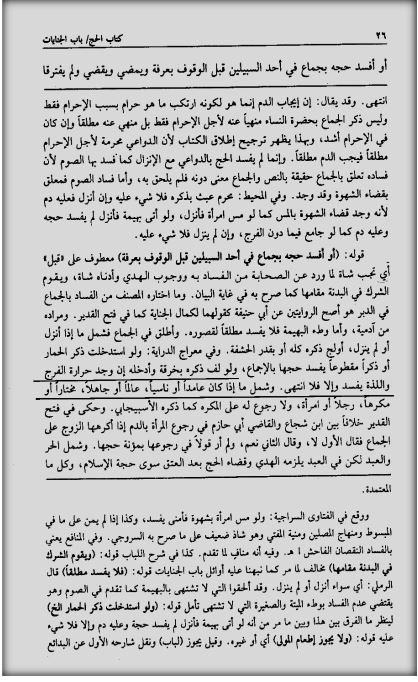 ٢٦
كتاب الحج/ باب الجنايات
أو أفسد حجه بجماع في أحد السبيلين قبل الوقوف بعرفة ويمضي ويقضي ولم يفترقا
انتهى. وقد يقال: إن إيجاب الدم إنما هو لكونه ارتكب ما هو حرام بسبب الإحرام فقط
وليس ذكر الجماع بحضرة النساء منهياً عنه لأجل الإحرام فقط بل منهي عنه مطلقاً وإن كان
في الإحرام أشد، وبهذا يظهر ترجيح إطلاق الكتاب لأن الدواعي محرمة لأجل الإحرام
مطلقاً فيجب الدم مطلقاً. وإنما لم يفسد الحج بالدواعي مع الإنزال كما فسد بها الصوم لأن
فساده تعلق بالجماع حقيقة بالنص والجماع معنى دونه فلم يلحق به، وأما فساد الصوم فمعلق
بقضاء الشهوة وقد وجد. وفي المحيط: محرم عبث بذكره فلا شيء عليه وإن أنزل فعليه دم
لأنه وجد قضاء الشهوة بالمس كما لو مس امرأة فأنزل، ولو أتى بهيمة فأنزل لم يفسد حجه
وعليه دم كما لو جامع فيما دون الفرج، وإن لم ينزل فلا شيء عليه.
قوله: (أو أفسد حجه بجماع في أحد السبيلين قبل الوقوف بعرفة) معطوف على «قبل»
أي تجب شاة لما ورد عن الصحابة من الفساد به ووجوب الهدي وأدناه شاة، ويقوم
الشرك في البدنة مقامها كما صرح به في غاية البيان. وما اختاره المصنف من الفساد بالجماع
في الدبر هو أصح الروايتين عن أبي حنيفة كقولهما لكمال الجناية كما في فتح القدير. ومراده
من آدمية، وأما وطء البهيمة فلا يفسد مطلقاً لقصوره. وأطلق في الجماع فشمل ما إذا أنزل
أو لم ينزل، أولج ذكره كله أو بقدر الحشفة. وفي معراج الدراية: ولو استدخلت ذكر الحمار
أو ذكراً مقطوعاً يفسد حجها بالإجماع، ولو لف ذكره بخرقة وأدخله إن وجد حرارة الفرج
واللذة يفسد وإلا فلا انتهى. وشمل ما إذا كان عامداً أو ناسياً، عالماً أو جاهلاً، مختاراً أو
مكرهاً، رجلاً أو امرأة، ولا رجوع له على المكره كما ذكره الأسبيجابي. وحكى في فتح
القدير خلافاً بين ابن شجاع والقاضي أبي حازم في رجوع المرأة بالدم إذا أكرهها الزوج على
الجماع فقال الأول لا، وقال الثاني نعم، ولم أر قولاً في رجوعها بمؤنة حجها. وشمل الحر
والعبد لكن في العبد يلزمه الهدي وقضاء الحج بعد العتق سوى حجة الإسلام، وكل ما
المعتمدة.
ووقع في الفتاوى السراجية: ولو مس امرأة بشهوة فأمنى يفسد، وكذا إذا لم يمن على ما في
المبسوط ومنهاج المصلين ومنية المفتي وهو شاذ ضعيف على ما صرح به السروجي. وفي المنافع يعني
بالفساد النقصان الفاحش ا هـ. وفيه أنه مناف لما تقدم. كذا في شرح اللباب قوله: (ويقوم الشرك
في البدنة مقامها) مخالف لما مر كما نبهنا عليه أوائل باب الجنايات قوله: (فلا يفسد مطلقاً) قال
الرملي: أي سواء أنزل أو لم ينزل. وقد ألحقوا التي لا تشتهى بالبهيمة كما تقدم في الصوم وهو
يقتضي عدم الفساد بوطء الميتة والصغيرة التي لا تشتهى تأمل قوله: (ولو استدخلت ذكر الحمار الخ)
لينظر ما الفرق بين هذا وبين ما مر من أنه لو أتى بهيمة فأنزل لم يفسد حجه وعليه دم وإلا فلا شيء
عليه قوله: (ولا يجوز إطعام المولى) أي أو غيره. وقيل يجوز (لباب) ونقل شارحه الأول عن البدائع